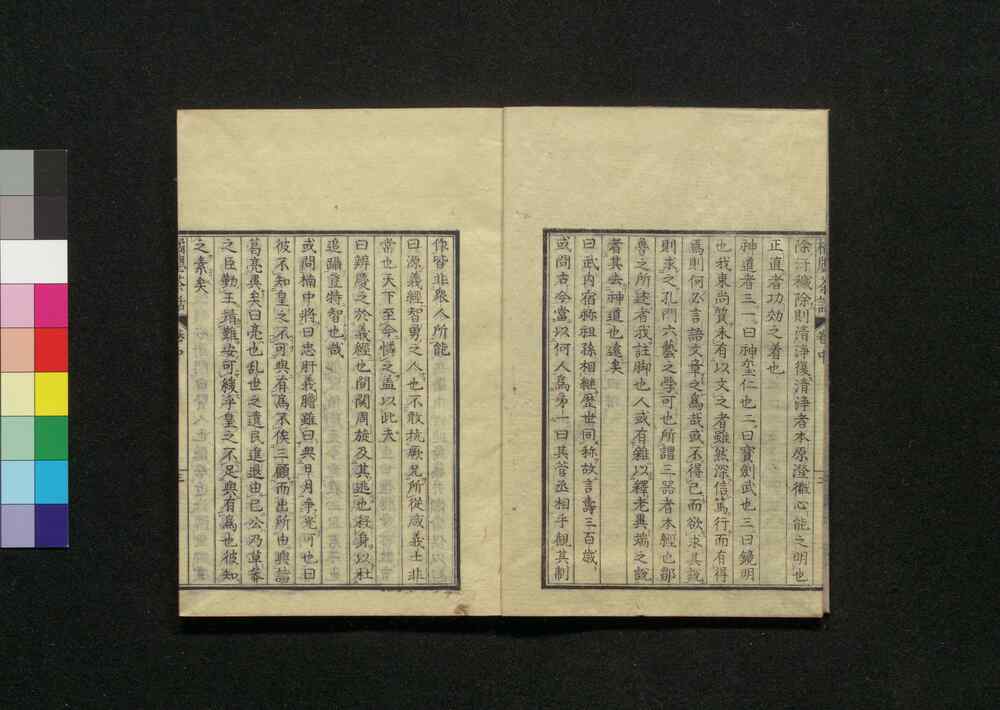 除汙穢除則清淨復清淨者本原澄徹心能之明也
正直者功効之着也
神道者三一曰神璽仁也二曰寶劍武也三曰鏡明
也我東尚質未有以文之者雖然深信篤行而有得
焉則何必言語文章之爲哉或不得已而欲求其說
則求之孔門六藝之學可也所謂三器者本經也鄒
魯之所述者我註脚也人或有雜以釋老異端之說
者其去神道也遠矣
曰武内宿祢祖孫相繼歷世同称故言壽三百歲
或問古今當以何人爲第一曰其菅丞相乎觀其制
作皆非衆人所能
曰源義經智勇之人也不敢抗厥兄所從咸義士非
常也天下至今憐之蓋以此夫
曰辨慶之於義經也間關周旋及其逃也殺身以杜
追躡豈特智也哉
或問楠中將曰忠肝義膽雖曰與日月爭光可也曰
彼不知皇之不可與有爲不俟三顧而出所由與諸
葛亮異矣曰亮也乱世之遺民進退由己公乃草莽
之臣勤王靖難安可緩乎皇之不足與有爲也彼知
之素矣